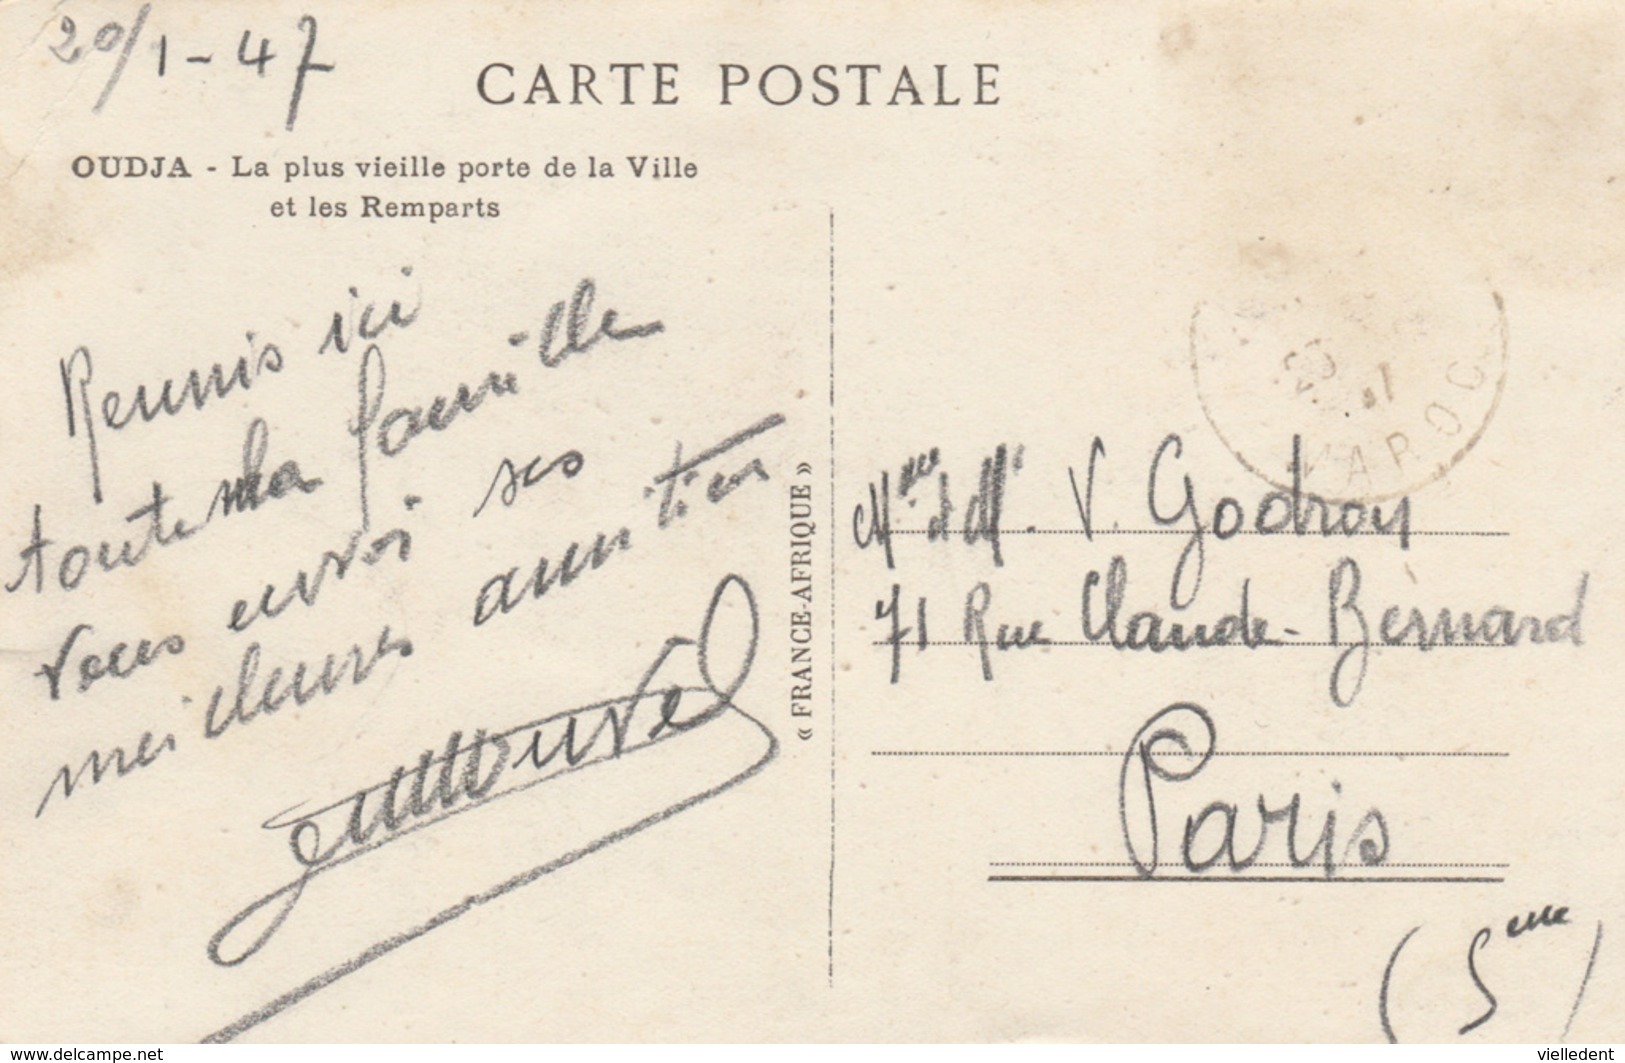 20/1-47
CARTE POSTALE
OUDJA - La plus vieille porte de la Ville
et les Remparts
Reunis ici
toute ma famille
vous envoi ses
meilleures amitiés
« FRANCE-AFRIQUE »
MAROC
Mme et Mr. V. Godron
71 Rue Claude-Bernard
Paris
(5eme)
www.delcampe.net
vielledent